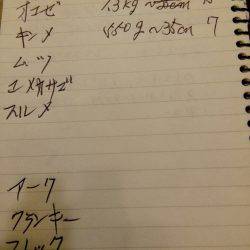 オコゼ 1.3kg ~35cm
キンメ 550g ~35cm 7
ムツ
ユメカサゴ
スルメ
アーク
クランキー
フレック